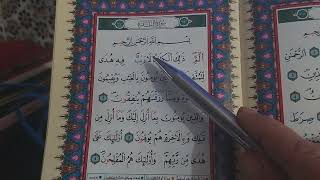 بِسْمِ اللَّهِ الرَّحْمَٰنِ الرَّحِيمِ
الٓمٓ ذَٰلِكَ الْكِتَابُ لَا رَيْبَ فِيهِ هُدًى
لِلْمُتَّقِينَ يُؤْمِنُونَ بِالْغَيْبِ وَيُقِيمُونَ
وَمِمَّا رَزَقْنَاهُمْ يُنْفِقُونَ
وَالَّذِينَ يُؤْمِنُونَ بِمَا أُنْزِلَ إِلَيْكَ وَمَا أُنْزِلَ
قَبْلِكَ وَبِالْآخِرَةِ هُمْ يُوقِنُونَ أُولَٰئِكَ عَلَىٰ
هُدًى مِنْ رَبِّهِمْ وَأُولَٰئِكَ هُمُ الْمُفْلِحُونَ